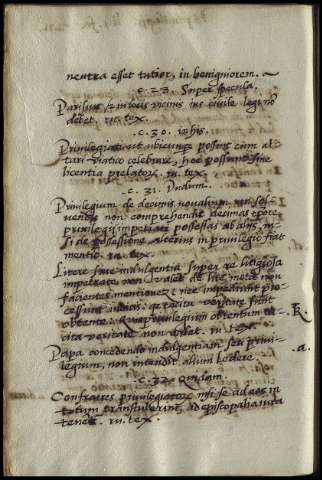 neutra esset tutior, in benigniorem.
.c. 29. Super specula.
Parisius, et in locis vicinis ius civile legi no
debet. in. tex.
.c. 30. in his.
Privilegiati ut ubicunque possint cum al
tari viatico celebrare, hoc possunt sine
licentia prelatorum. in. tex.
.c. 31. Dudum.
Privilegium de decimis novalium non sol-
vendis non comprehendit decimas tpore
privilegij impetrati possessas ab alijs, ni
si de possessione alterius in privilegio fiat
mentio. in. tex.
Litere sive indulgentia super re litigiosa
impetrate non valent de lite mota non
facientes mentionem: nec impediunt pro-
cessum iudicij. tacita veritate
obtente. privilegium obtentum ta-
cita veritate non valet. in. tex.
R
Papa concedendo indulgentiam seu privi-
legium, non intendit alium ledere.
.a.
.c. 32. Quidam.
Confratres privilegiatorum nisi se ad eos in
totum transtulerint, ad episcopalia iura
tenentur. in. tex.